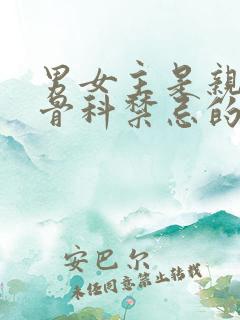 男女主是亲
骨科禁忌的
安巴尔
未经同意禁止转载